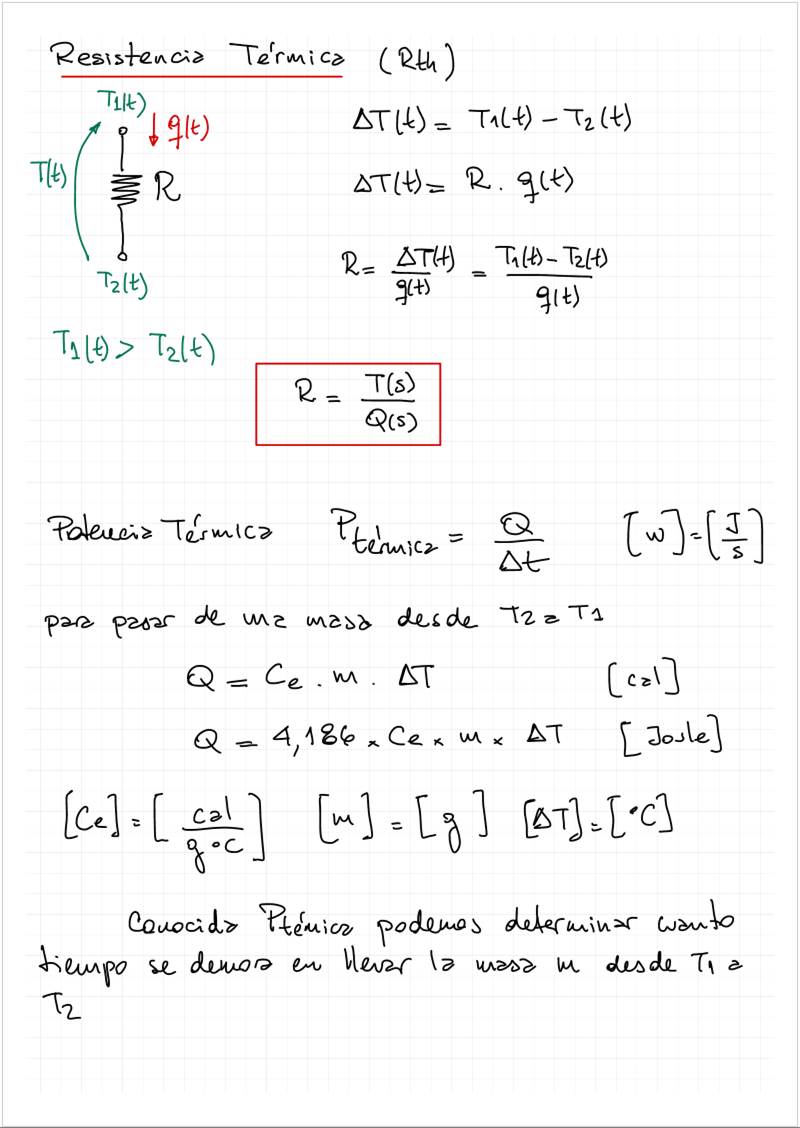 Resistencia Térmica (Rth)
T1(t)
q(t)
T(t)
R
T2(t)
ΔT(t) = T1(t) - T2(t)
ΔT(t) = R . q(t)
R = ΔT(t) / q(t) = T1(t) - T2(t) / q(t)
T1(t) > T2(t)
R = T(s) / Q(s)
Potencia Térmica Ptérmica = Q / Δt [w] = [J / s]
para pasar de una masa desde T2 a T1
Q = Ce . m . ΔT [cal]
Q = 4,186 x Ce x m x ΔT [Joule]
[Ce] = [cal / g °C] [m] = [g] [ΔT] = [°C]
Conocida Ptémica podemos determinar cuanto
tiempo se demora en llevar la masa m desde T1 a
T2